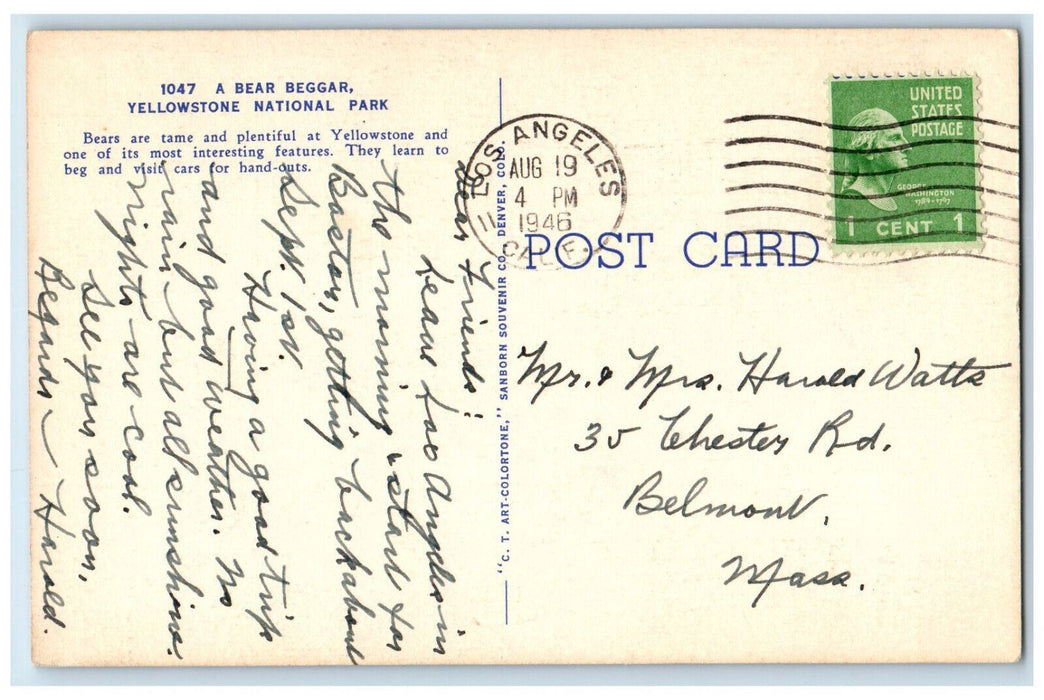 1047 A BEAR BEGGAR,
YELLOWSTONE NATIONAL PARK
Bears are tame and plentiful at Yellowstone and
one of its most interesting features. They learn to
beg and visit cars for hand-outs.
Dear Friends!
Leave Los Angeles in
the morning, start for
Boston, getting back about
Sept. 1st.
Having a good trip
and good weather. No
rain, but all sunshine.
Nights are cool.
See you soon,
Regards – Harold.
"C. T. ART-COLORTONE," SANBORN SOUVENIR CO., DENVER, COLO.
LOS ANGELES
AUG 19
4 PM
1946
CALIF.
11
UNITED
STATES
POSTAGE
GEORGE
WASHINGTON
1789-1797
1 CENT 1
POST CARD
Mr. & Mrs. Harold Watts
35 Chester Rd.
Belmont,
Mass.